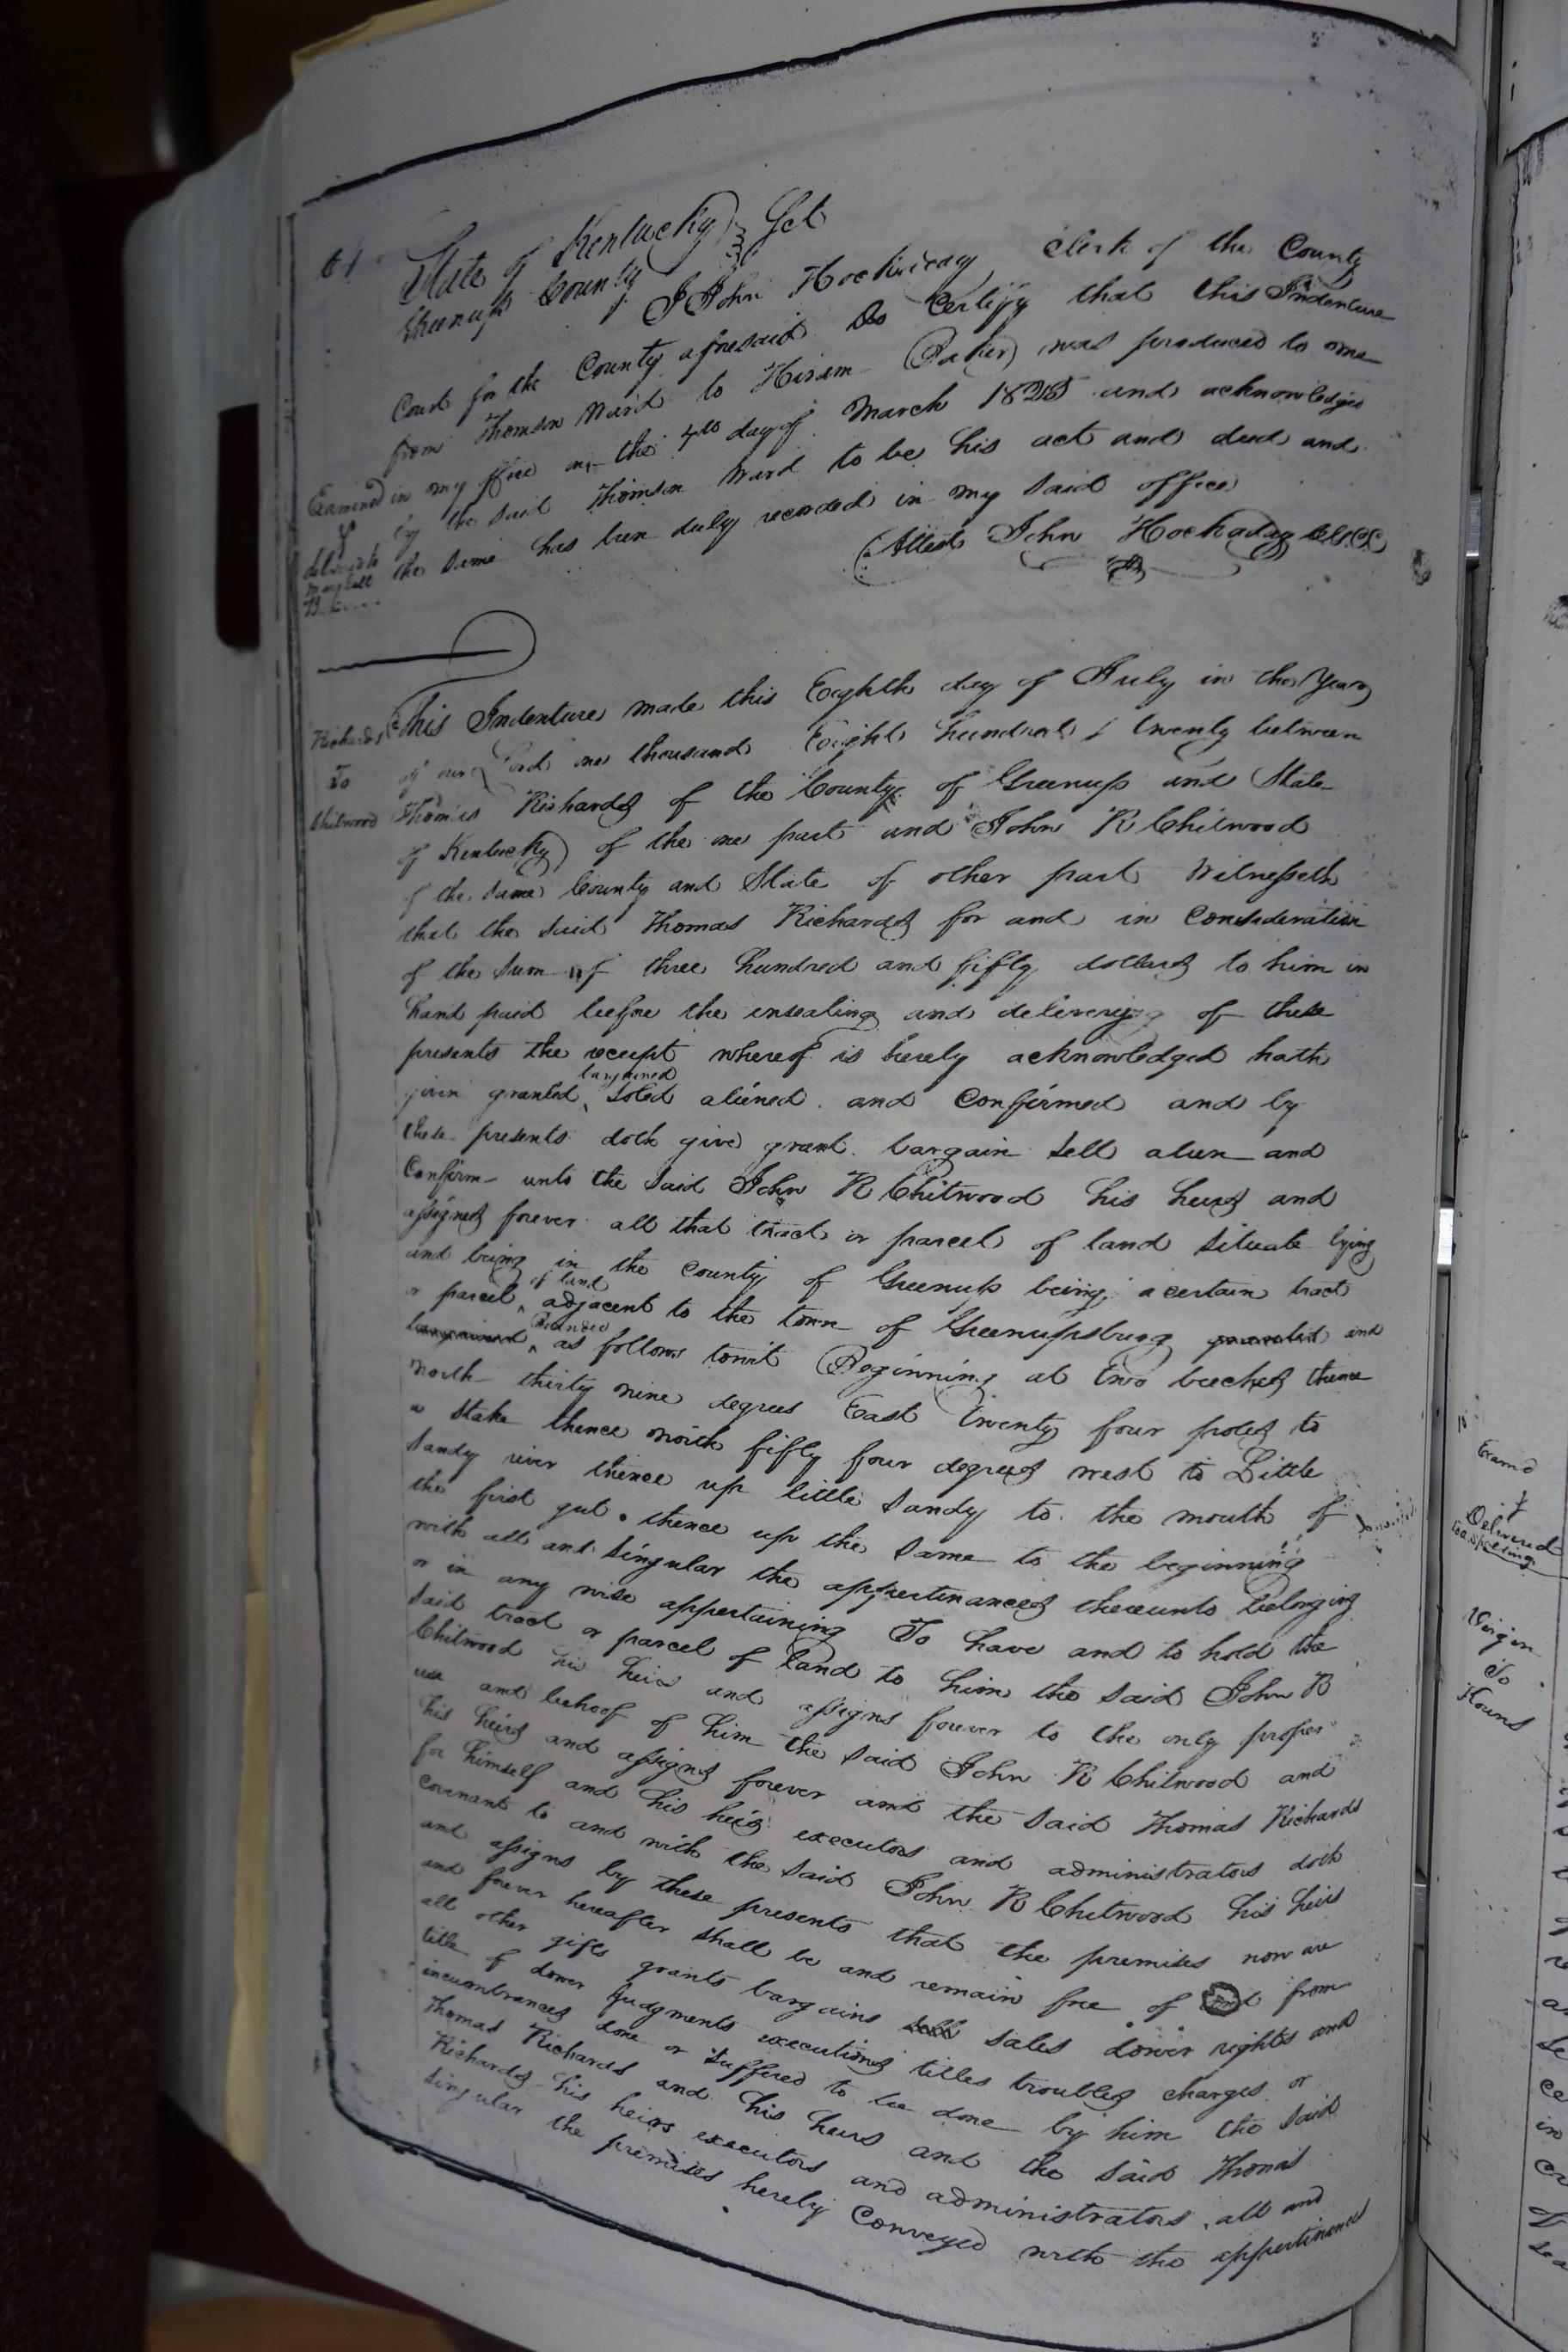 61
State of Kentucky Sct
Greenup County
I John Hockaday Clerk of the County
Court for the County aforesaid do Certify that this Indenture
from Thomson Ward to Hiram Baker was produced to me
in my office on the 4th day of March and acknowledged
by the said Thomson Ward to be his act and deed and
the same has been duly recorded in my said office
Attest John Hockaday
Examined
&
Richards
To
Chitwood
This Indenture made this Eighth day of July in the Year
of our Lord one thousand Eight hundred & twenty between
Thomas Richards of the County of Greenup and State
of Kentucky of the one part and John R Chitwood
of the same County and State of other part Witnesseth
that the said Thomas Richards for and in Consideration
of the sum of three hundred and fifty dollars to him in
hand paid before the ensealing and delivery of these
presents the receipt whereof is hereby acknowledged hath
bargained
given granted, soled aliened and Confirmed and by
these presents doth give grant bargain sell alien and
Confirm unto the said John R Chitwood his heirs and
assigns forever all that tract or parcel of land situate lying
and being in the County of Greenup being a certain tract
of land
or parcel adjacent to the town of Greenupsburg granted and
Bounded
bargained as follows towit Beginning at two beeches thence
north thirty nine degrees East twenty four poles to
a stake thence north fifty four degrees west to Little
Sandy river thence up little Sandy to the mouth of
the first gut thence up the same to the beginning
with all and singular the appertenances thereunto belonging
or in any wise appertaining To have and to hold the
said tract or parcel of land to him the said John R
Chitwood his heirs and assigns forever to the only proper
use and behoof of him the said John R Chitwood and
his heirs and assigns forever and the said Thomas Richards
for himself and his heirs executors and administrators doth
covenant to and with the said John R Chitwood his heirs
and assigns by these presents that the premises now are
and forever hereafter shall be and remain free of from
all other gifts grants bargains sell sales dower rights and
title of dower Judgments executions titles troubles charges or
incumbrances done or suffered to be done by him the said
Thomas Richards and his heirs and the said Thomas
Richards his heirs executors and administrators all and
singular the premises hereby Conveyed with the appertinances
Examd
&
Delivered
Virgin
To
Kouns